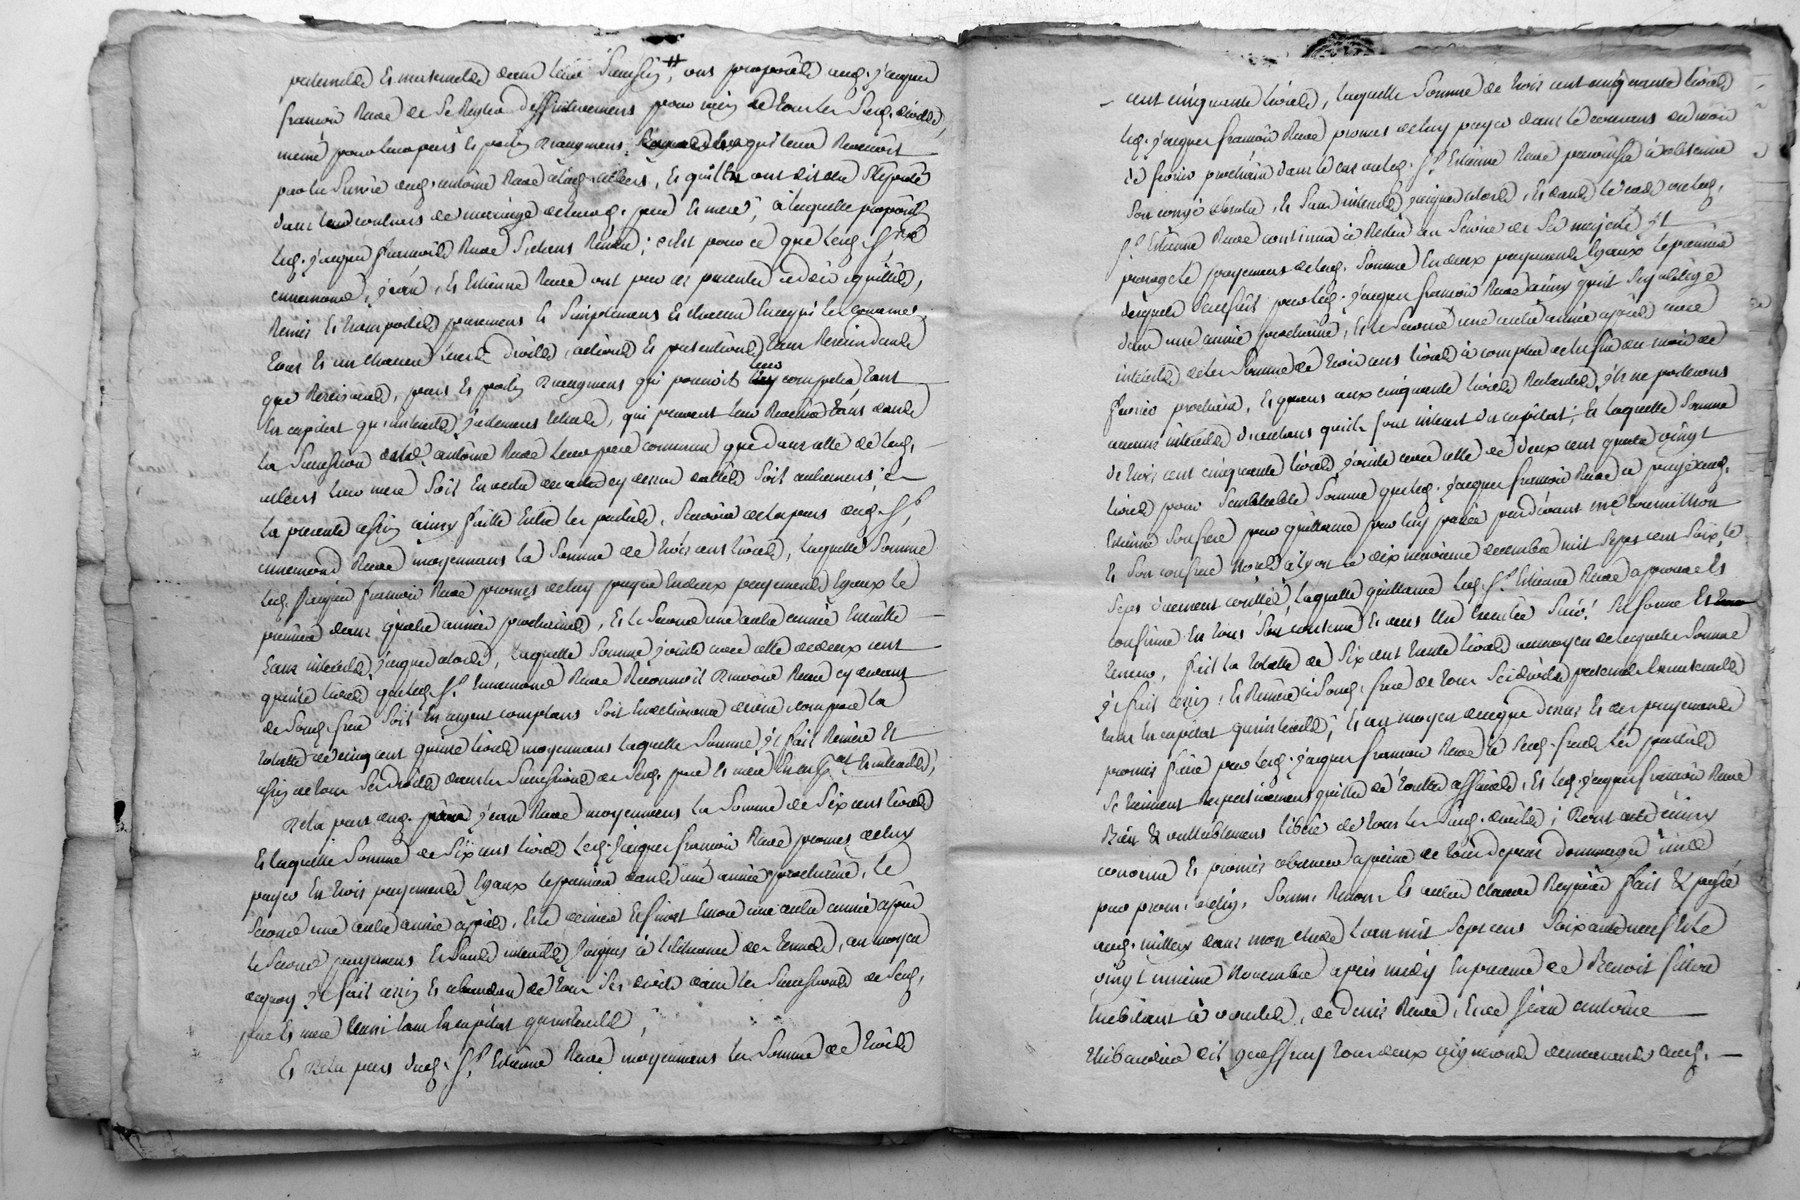 paternelle et maternelle dans leur succession, ont proposé aud. jacques
françois Rave de se Restrin deffinitivement pour rien de tous les susd. droits
même pour leur parts et portion d'augment qui leur Revenoit
par la survie dud. antoine Rave à lad. albert, et qu'ils ont dit être stipulé
dans leur contract de mariage de leursd. père et mère, à laquelle proposition
led. jacques françois Rave s'étant Rendu ; c'est pour ce que lesd. srs
ennemond, jean, et Etienne Rave ont par ces présentes cédé, quitté,
Remis et transporté purement et simplement et chacun
tous et un chacun leurs droits, actions et prétentions tant
que Rescisoires, parts et portion d'augment qui pouvoit leur competer, tant
en capital qu'interests justement échus, qui peuvent leur Revenir tant dans
la succession dud. antoine Rave leur père commun que dans celle de lad.
albert leur mère soit en vertu des actes cy dessus datés soit autrement ; et
la présente cession ainsy faitte entre les parties, sçavoir de la part dud. sr
ennemond Rave moyennant la somme de trois cent livres, laquelle somme
led. jacques françois Rave promet de luy payer en deux payements égaux le
premier dans quatre années prochaines, et le second une autre année ensuitte
sans interests jusques alors, laquelle somme jointe avec celle de deux cent
quinze livres que led. sr ennemond Rave Reconnoit d'avoir Reçu cy devant
de sond. frère soit en argent comptant soit compose la
totalle de cinq cent quinze livres moyennant laquelle somme, il fait Remise et
cession de tous ses droits dans les successions de sesd. père et mère en capal et interests ;
De la part dud. jean Rave moyennant la somme de six cent livres
et laquelle somme de six cent livres led. jacques françois Rave promet de luy
payer en trois payements égaux le premier dans une année prochaine, le
second une autre année après, et le dernier et finat encore une autre année après
le second payement et sans interests jusques à l'échéance des termes, au moyen
de quoy il fait cession et abandon de tous ses droits dans les successions de sesd.
père et mère aussi tant en capital qu'interests ;
Et de la part dud. sr Etienne Rave moyennant la somme de trois
cent cinquante livres, laquelle somme de trois cent cinquante livres
led. jacques françois Rave promet de luy payer dans le courant du mois
de fevrier prochain dans le cas où led. sr Etienne Rave parvienne à obtenir
son congé absolu, et sans interests jusques alors, et dans le cas où led.
sr Etienne Rave continue à Rester au service de sa majesté, il
proroge le payement de lad. somme en deux payements égaux le premier
desquels sera fait par led. jacques françois Rave ainsy qu'il s'y oblige
dans une année prochaine, et le second une autre année après avec
interests de la somme de trois cent livres à compter de la fin du mois de
fevrier prochain, et quant aux cinquante livres Restantes, ils ne porteront
aucuns interests d'autant qu'ils sont interest du capital ; et laquelle somme
de trois cent cinquante livres jointe avec celle de deux cent quatre vingt
livres pour semblable somme que led. jacques françois Rave a payé aud.
Etienne son frère par quittance par luy passée pardevant me tournillon
et son confrère nores à lyon le dix neuvième decembre mil sept cent soix.te
sept duement contrôllée, laquelle quittance led. sr Etienne Rave approuve et
confirme en tous son contenu et veut être exécutée suiv.t sa forme et
teneur, fait la totalle de six cent trente livres au moyen de laquelle somme
il fait cession, et Remise à sond. frère de tous ses droits paternels et maternels
tant en capital qu'interests ; et au moyen de ce que dessus et des payements
promis faire par led. jacques françois Rave à sesd. frères les parties
se tiennent respectivement quittes de touttes affaires, et led. jacques françois Rave
bien & vallablement libéré de tous les susd. droits ; dont acte ainsy
convenu et promis observer à peine de tous dépens dommages int.ts
par prom. oblig. soum. Renon. et autres clauses Requises fait & passé
aud. millery dans mon étude l'an mil sept cent soixante neuf et le
vingt unième novembre après midy en présence de Benoit fillion
habitant à vourles, de denis Rave, et de jean antoine
thibaudier dit gueffroy tous deux vignerons demeurants aud.